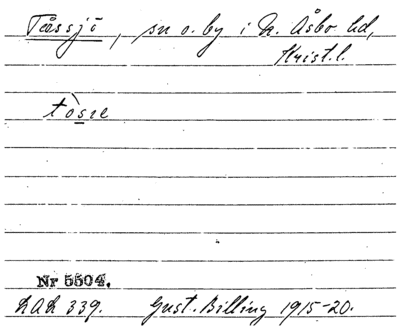 Tåssjö, sn o. by i N. Åsbo hd,
Krist. l.
tòsɪe
Nr 5504.
LAL 339. Gust. Billing 1915-20.